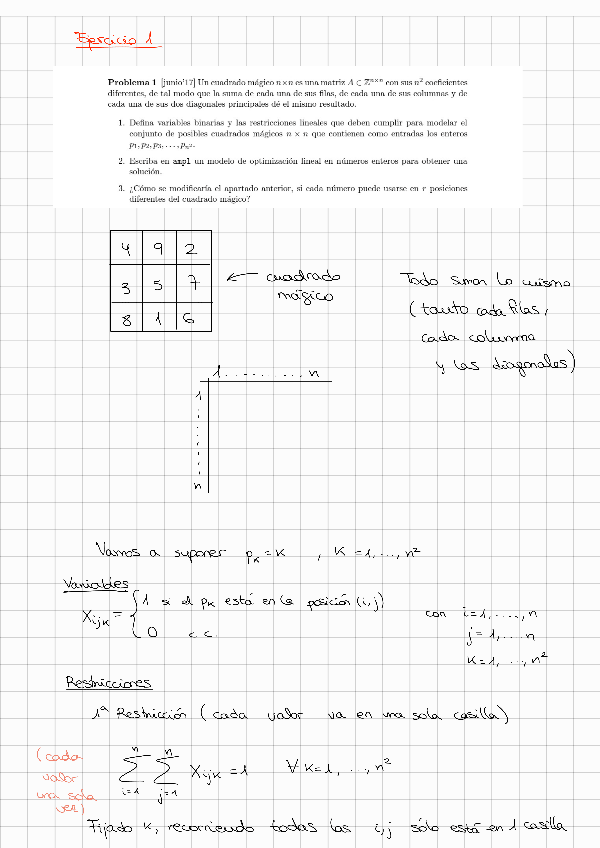 Ejercicio 1
Problema 1 [junio'17] Un cuadrado mágico n×n es una matriz A ⊂ ℤⁿˣⁿ con sus n² coeficientes
diferentes, de tal modo que la suma de cada una de sus filas, de cada una de sus columnas y de
cada una de sus dos diagonales principales dé el mismo resultado.
1. Defina variables binarias y las restricciones lineales que deben cumplir para modelar el
conjunto de posibles cuadrados mágicos n × n que contienen como entradas los enteros
p₁, p₂, p₃, . . . , pₙ².
2. Escriba en ampl un modelo de optimización lineal en números enteros para obtener una
solución.
3. ¿Cómo se modificaría el apartado anterior, si cada número puede usarse en r posiciones
diferentes del cuadrado mágico?
4 9 2
3 5 7
8 1 6
← cuadrado
mágico
Todo suman lo mismo
(tanto cada filas,
cada columna
y las diagonales)
1 . . . . . . . . , n
1
n
Vamos a suponer pₖ = k , k = 1, ..., n²
Variables
Xᵢⱼₖ = { 1 si el pₖ está en la posición (i, j)
0 c.c.
con i = 1, ....., n
j = 1, ... n
k = 1, ..., n²
Restricciones
1ª Restricción (cada valor va en una sola casilla)
(cada
valor
una sola
vez)
n n
∑ ∑ Xᵢⱼₖ = 1 ∀ k = 1, . . , n²
i=1 j=1
Fijado k, recorriendo todas las i,j sólo está en 1 casilla